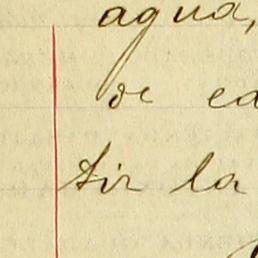 agua,
de ed
tir la